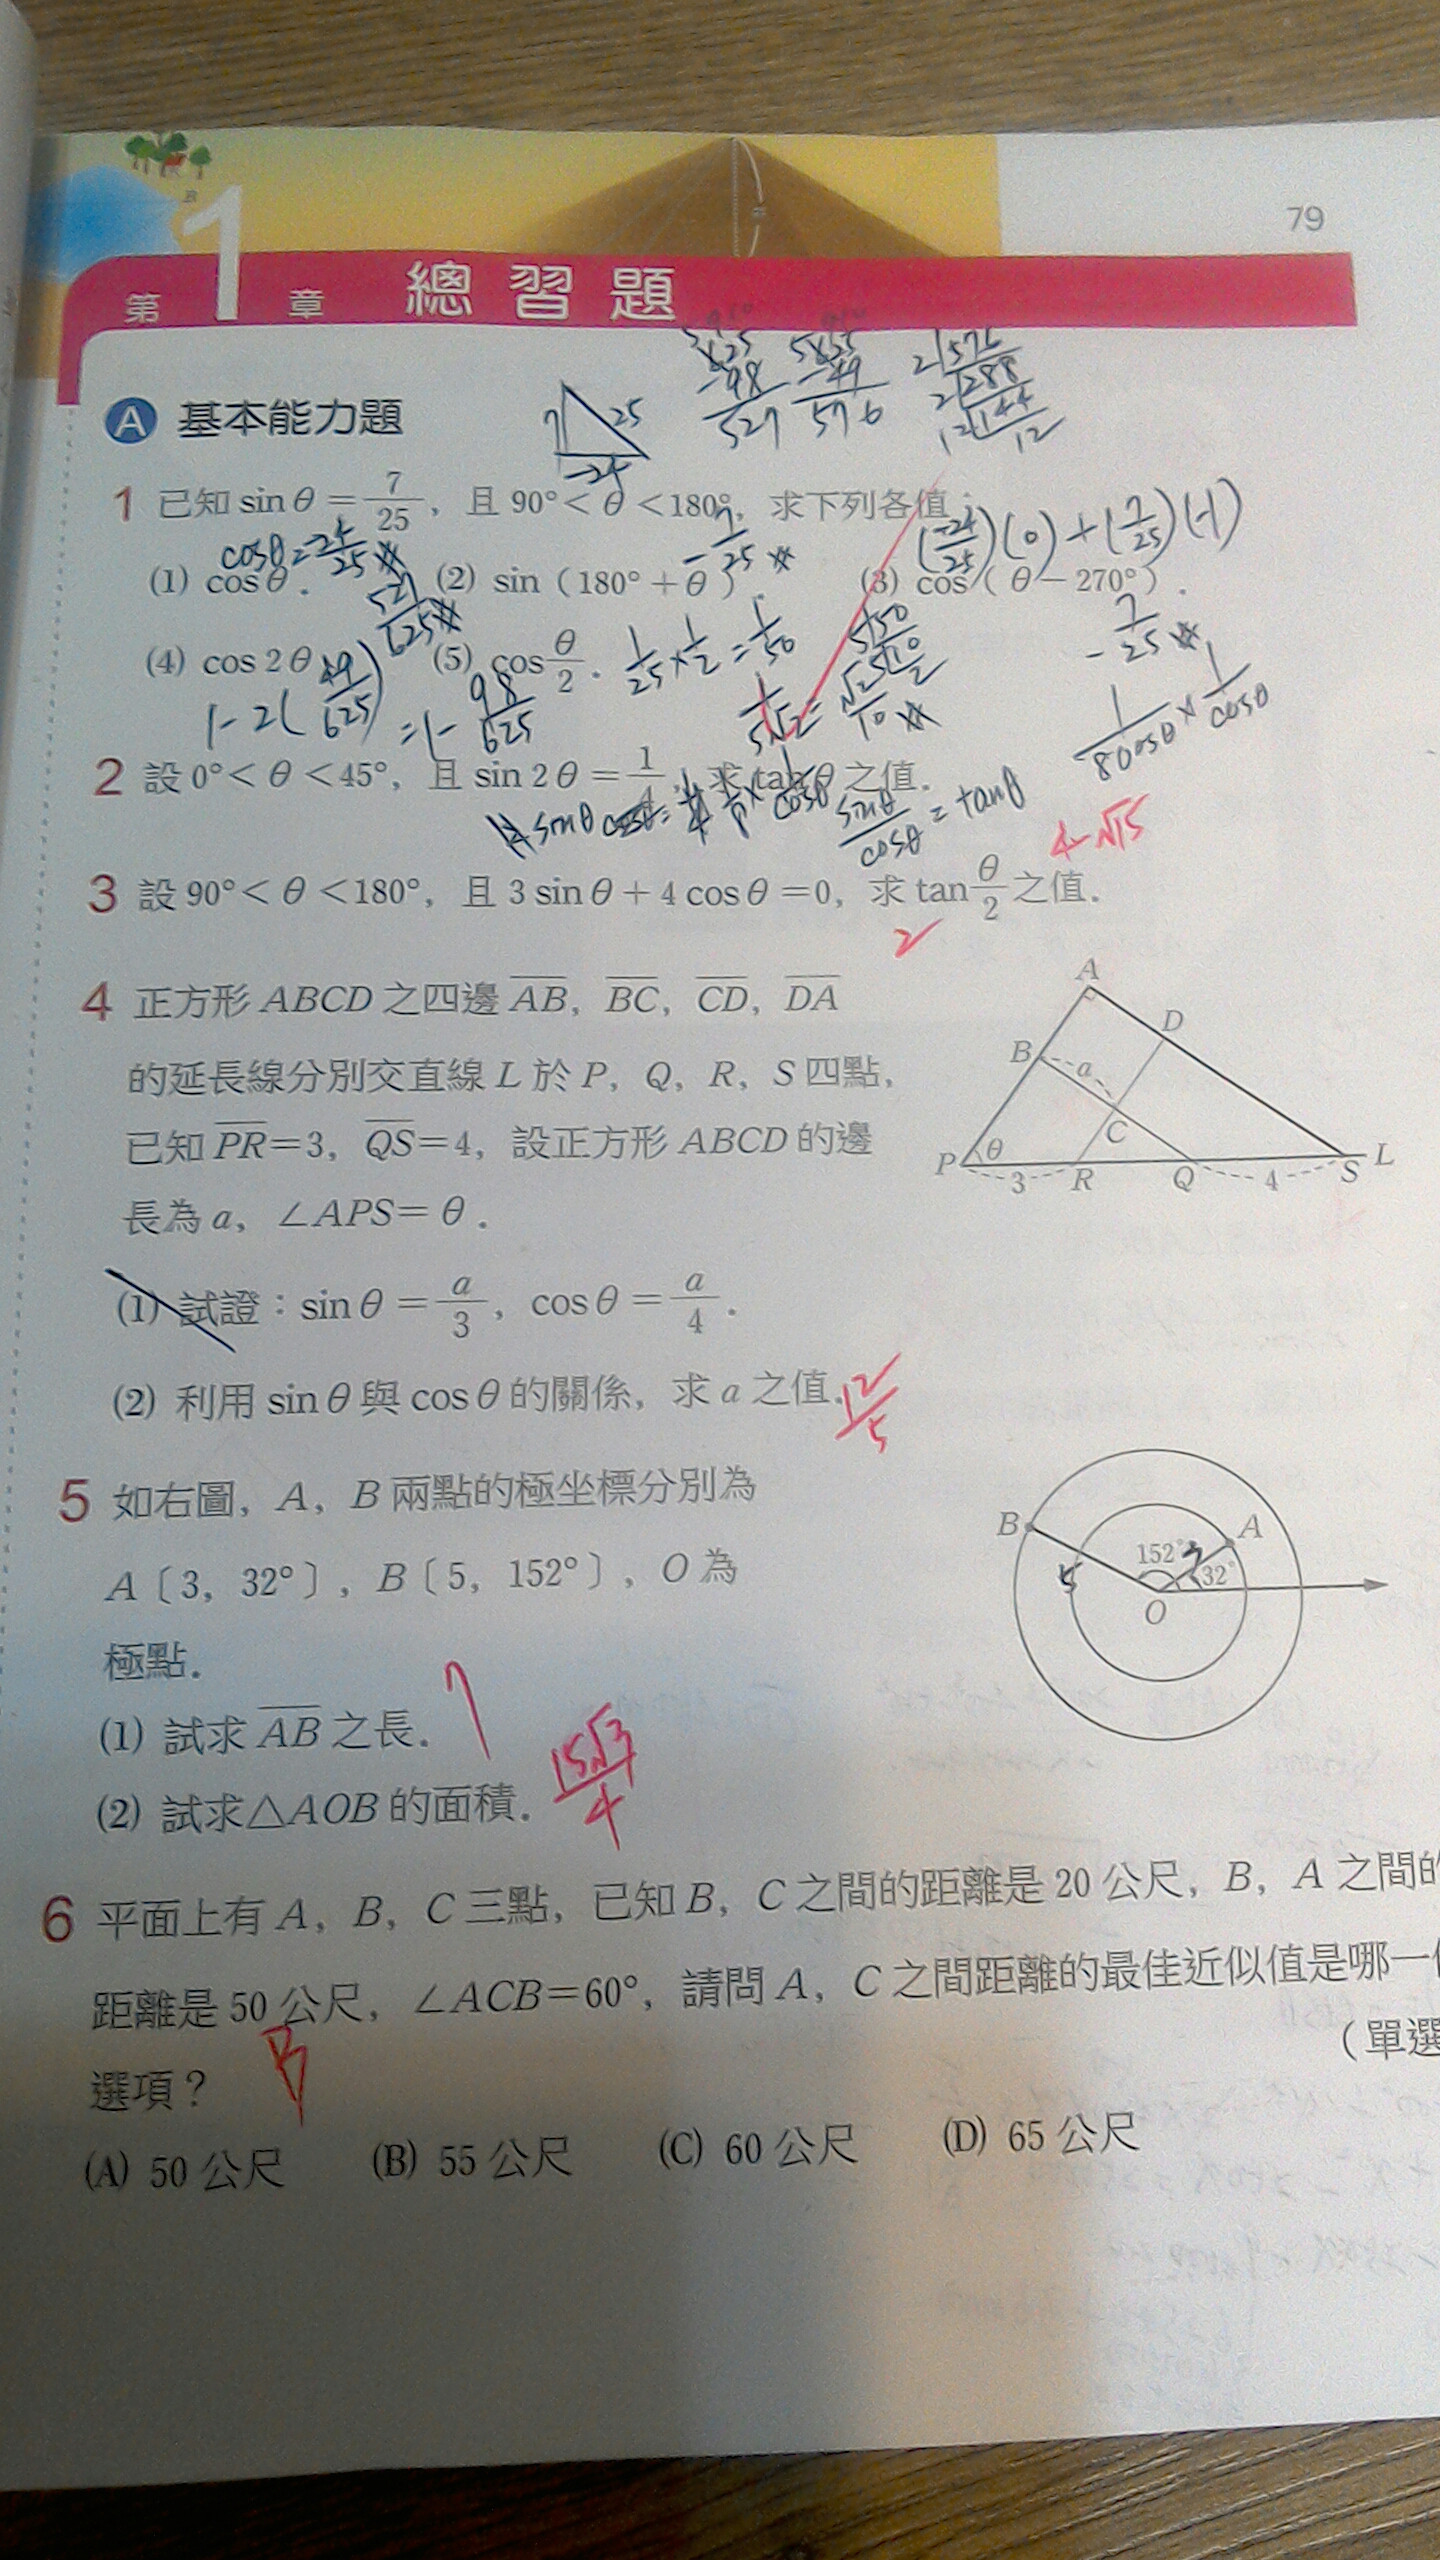 79
第 1 章 總習題
A 基本能力題
7 25 -24
1 已知 sinθ = 7/25, 且 90° < θ < 180°, 求下列各值:
cosθ = -24/25
-7/25
(-24/25)(0) + (7/25)(-1)
(1) cosθ. (2) sin (180° + θ). (3) cos (θ - 270°).
527/625
-7/25
(4) cos 2θ (5) cos θ/2. 1/25 × 1/2 = 1/50
1 - 2(49/625) = 1 - 98/625
1/5√2 = √2/10
1/8cosθ × 1/cosθ
2 設 0° < θ < 45°, 且 sin 2θ = 1/4, 求 tanθ 之值.
sinθ/cosθ = tanθ
4-√15
3 設 90° < θ < 180°, 且 3 sinθ + 4 cosθ = 0, 求 tan θ/2 之值.
2
4 正方形 ABCD 之四邊 AB, BC, CD, DA
的延長線分別交直線 L 於 P, Q, R, S 四點,
已知 PR = 3, QS = 4, 設正方形 ABCD 的邊
長為 a, ∠APS = θ.
A
D
B a
C
P θ 3 R Q 4 S L
(1) 試證:sinθ = a/3, cosθ = a/4.
(2) 利用 sinθ 與 cosθ 的關係, 求 a 之值.
12/5
5 如右圖, A, B 兩點的極坐標分別為
A〔3, 32°〕, B〔5, 152°〕, O 為
極點.
B A
152° 3
5 32°
O
(1) 試求 AB 之長. 7
(2) 試求△AOB 的面積. 15√3/4
6 平面上有 A, B, C 三點, 已知 B, C 之間的距離是 20 公尺, B, A 之間的
距離是 50 公尺, ∠ACB = 60°, 請問 A, C 之間距離的最佳近似值是哪一
選項? B (單選
(A) 50 公尺 (B) 55 公尺 (C) 60 公尺 (D) 65 公尺